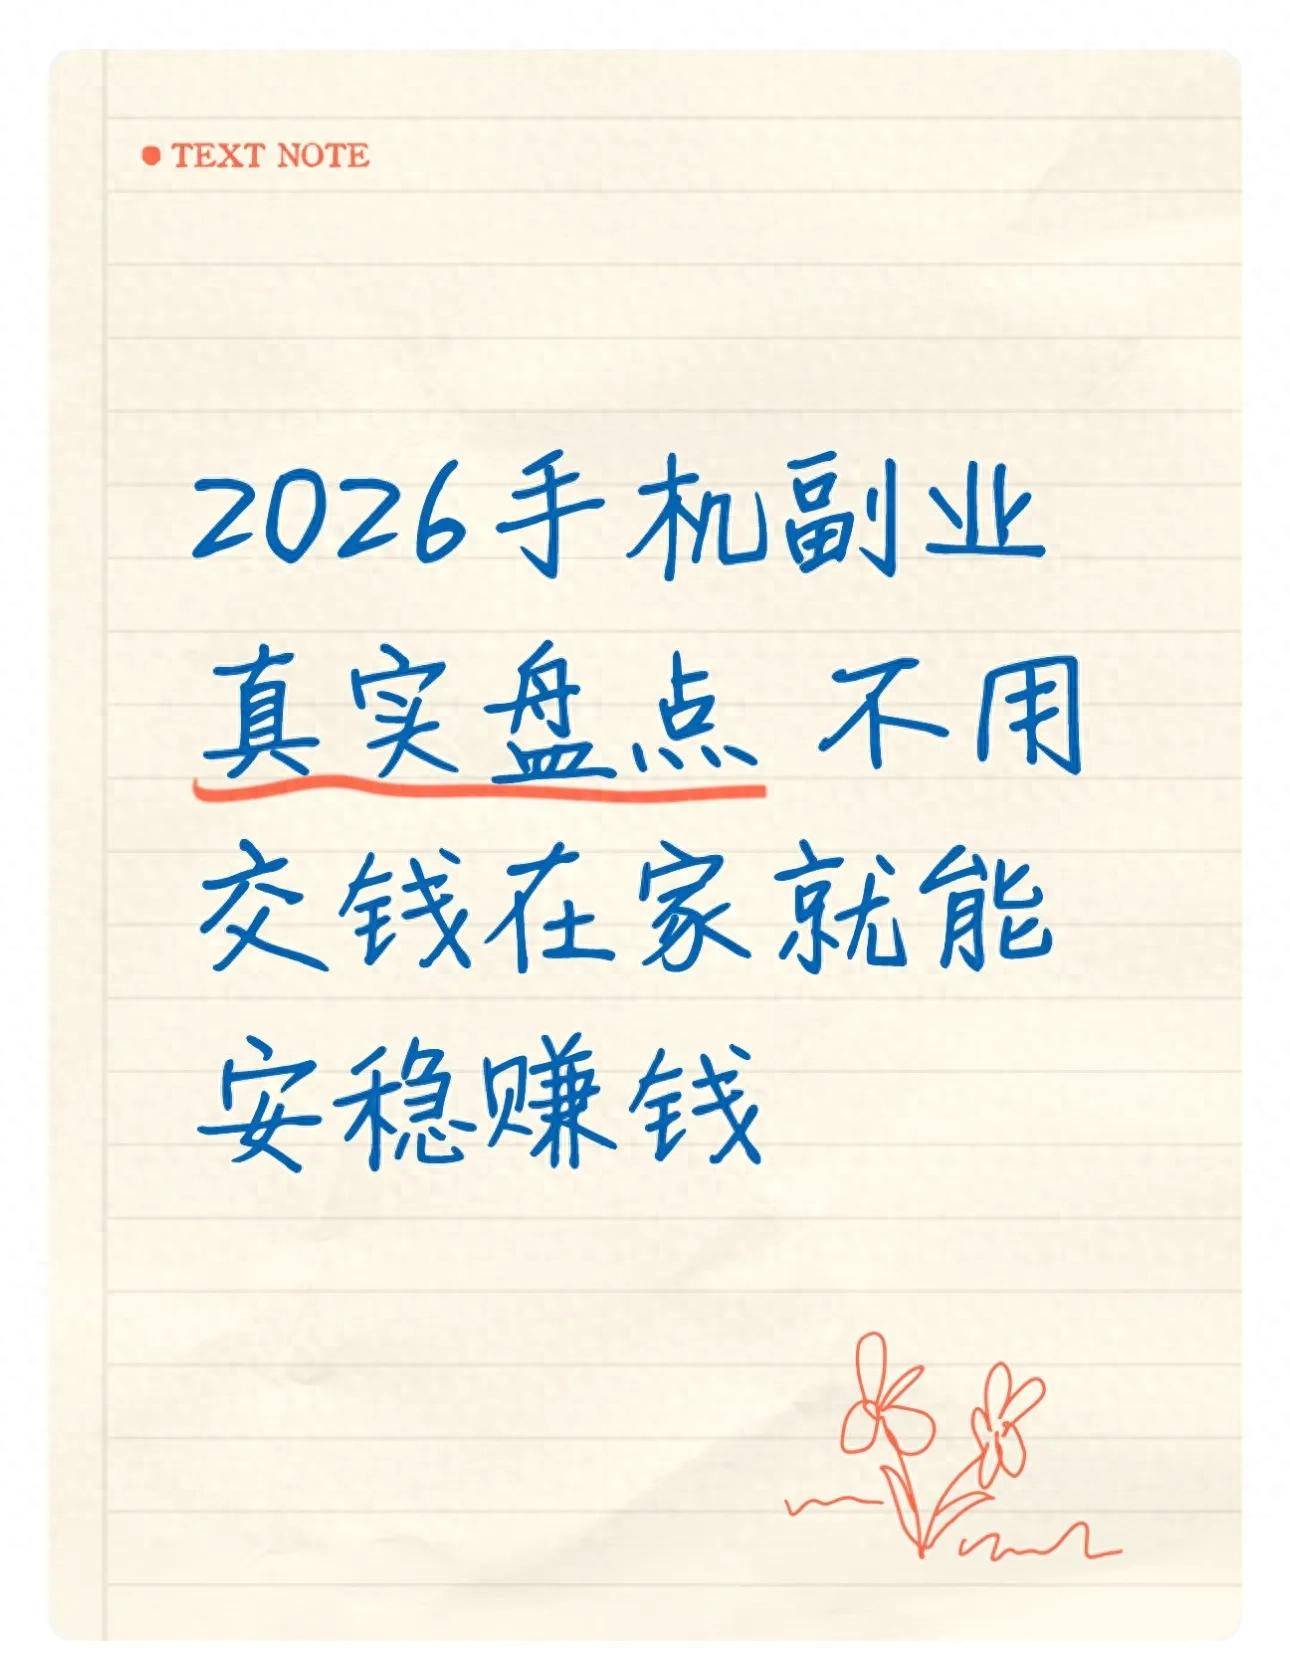 TEXT NOTE
2026手机副业
真实盘点 不用
交钱在家就能
安稳赚钱